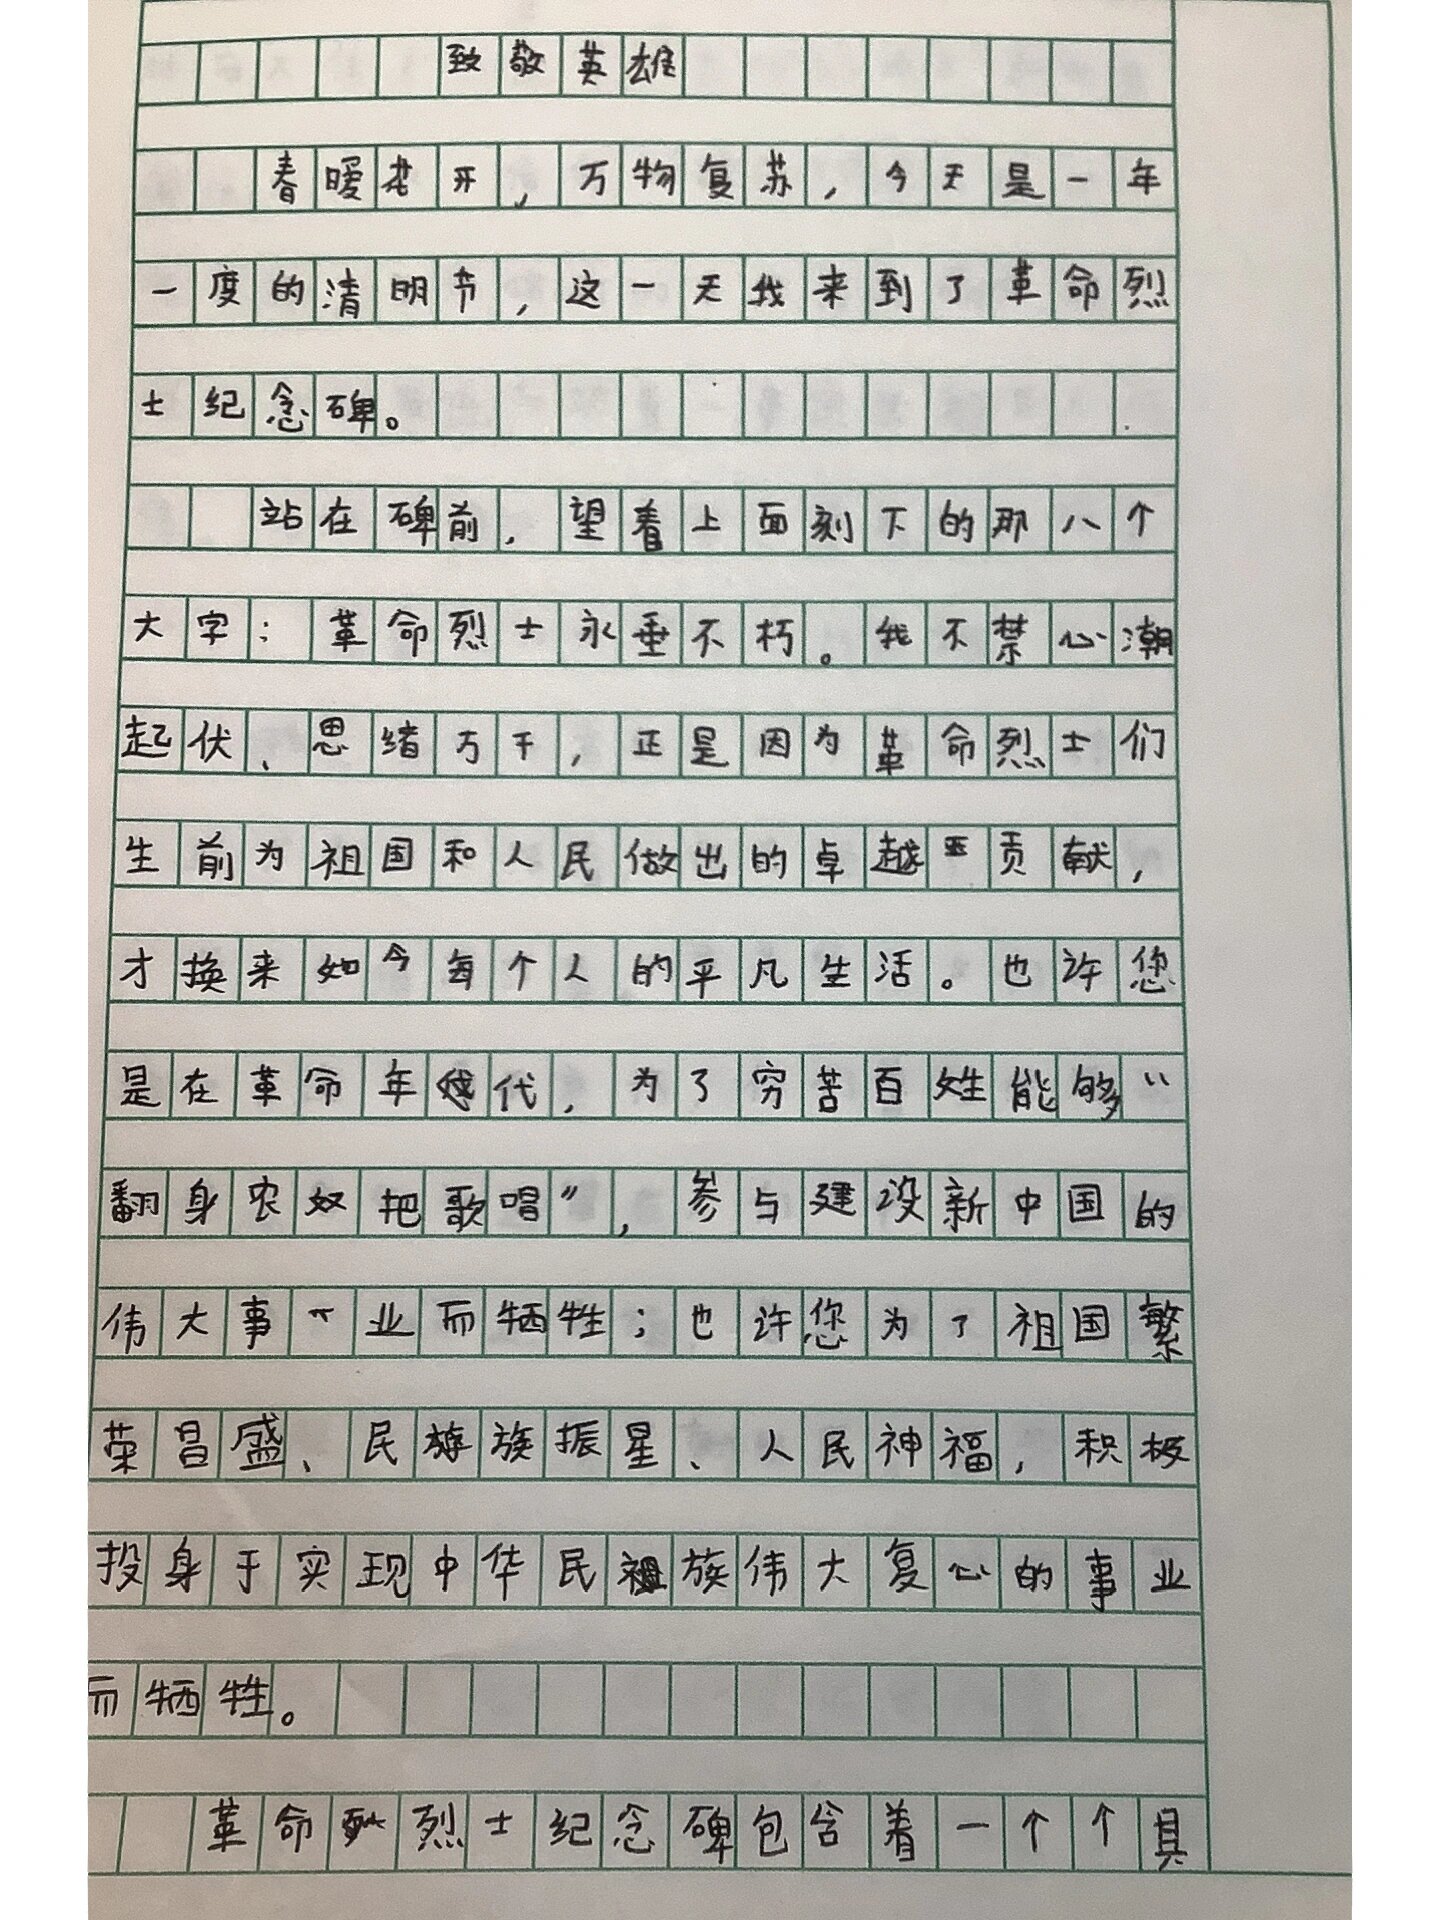 致敬英雄
春暖花开，万物复苏，今天是一年
一度的清明节，这一天我来到了革命烈
士纪念碑。
站在碑前，望着上面刻下的那八个
大字：革命烈士永垂不朽。我不禁心潮
起伏、思绪万千，正是因为革命烈士们
生前为祖国和人民做出的卓越贡献，
才换来如今每个人的平凡生活。也许您
是在革命年代，为了穷苦百姓能够“
翻身农奴把歌唱”，参与建设新中国的
伟大事业而牺牲；也许您为了祖国繁
荣昌盛、民族振星、人民神福，积极
投身于实现中华民族伟大复心的事业
而牺牲。
革命烈士纪念碑包含着一个个具